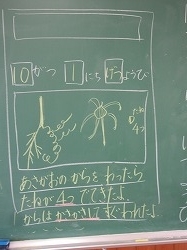 10がつ 1にち げつようび
たね
4つ
あさがおのからをわったら
たねが4つでてきたよ。
からはかさかさしてすぐわれたよ。